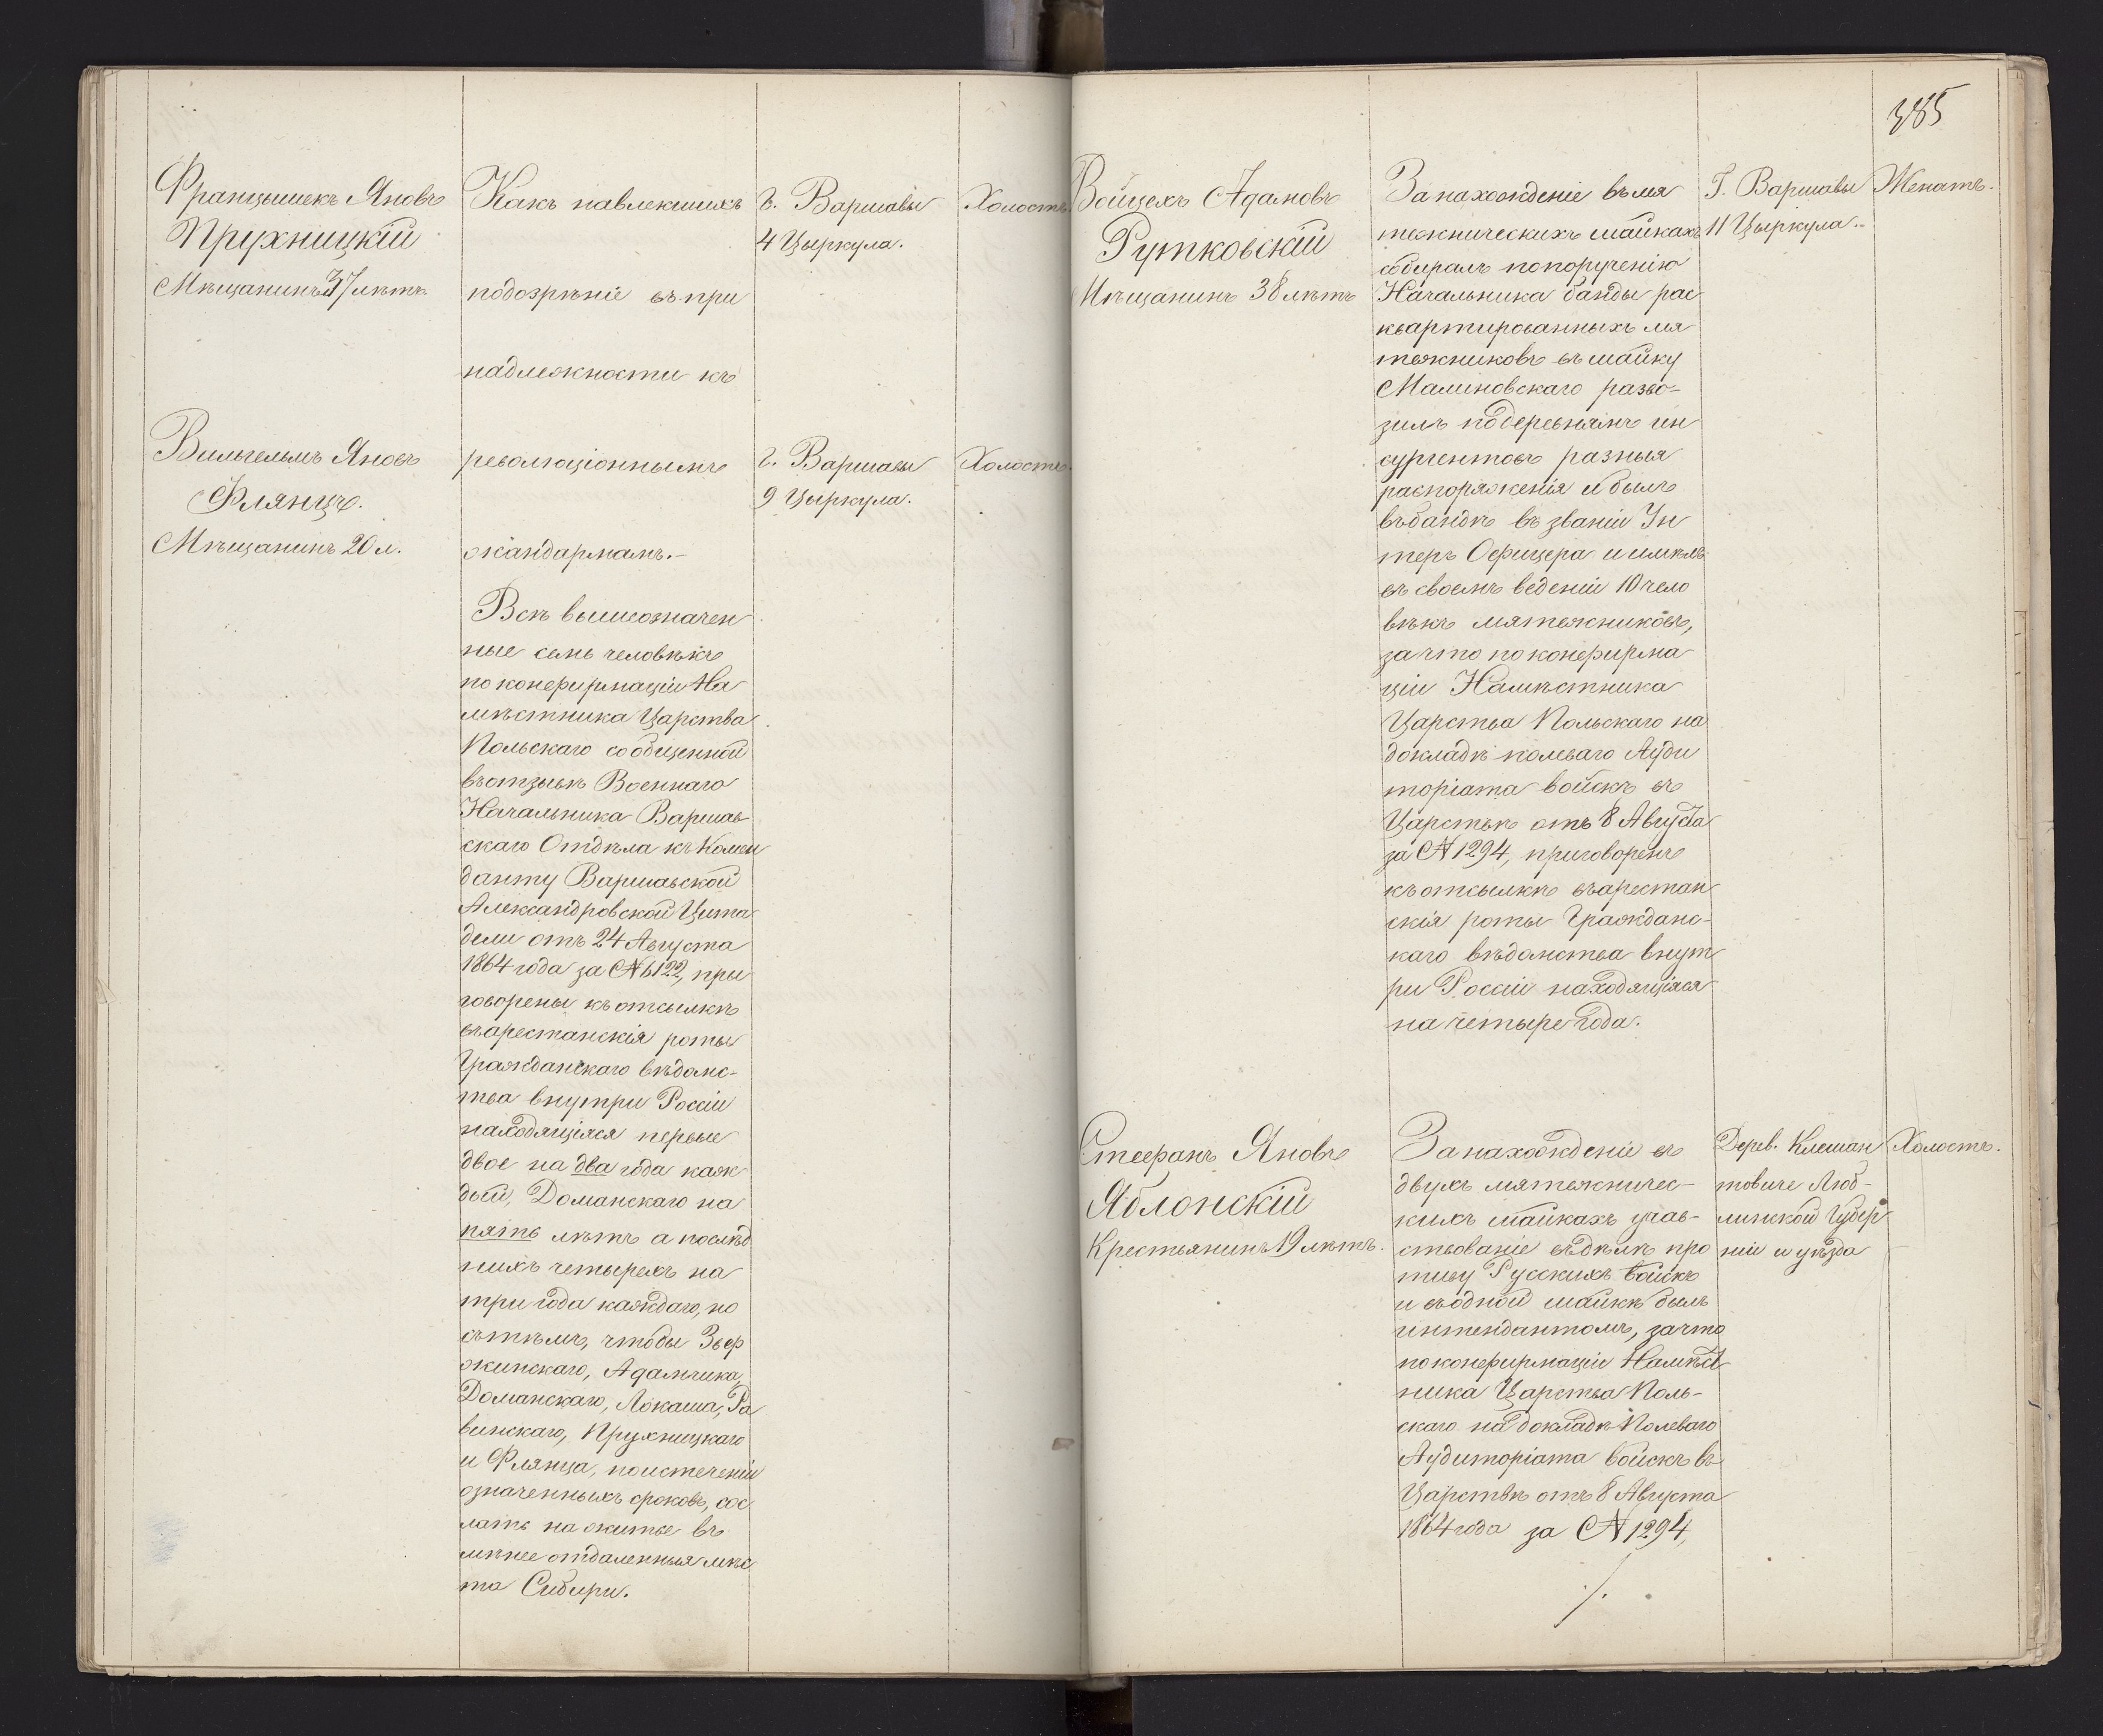 Францишекъ Яновъ
Пружницкій
Мѣщанинъ 37 лѣтъ.
Вильгельмъ Яновъ
Флянцъ.
Мѣщанинъ 20 л.
Какъ навлекшихъ
подозрѣніе въ при
надлежности къ
революціоннымъ
жандармамъ.-
Всѣ вышеозначен
ные семь человѣкъ
по конфирмаціи На
мѣстника Царства
Польскаго сообщенной
въ отзывѣ Военнаго
Начальника Варшав
скаго Отдѣла къ Комен
данту Варшавской
Александровской Цита
дели отъ 24 Августа
1864 года за № 6122, при
говорены къ отсылкѣ
въ арестанскія роты
Гражданскаго вѣдомс-
тва внутри Россіи
находящіяся первые
двое на два года каж
дый, Доманскаго на
пять лѣтъ а послѣд
нихъ четырехъ на
три года каждаго, но
съ тѣмъ, чтобы Звер
жинскаго, Адамчика,
Доманскаго, Локаша, Ра
винскаго, Пружницкаго
и Флянца, по истеченіи
означенныхъ сроковъ, сос
лать на житье въ
мѣнее отдаленныя мѣс
та Сибири.
г. Варшавы
4 Цыркула.
г. Варшавы
9 Цыркула.
Холостъ.
Холостъ.
385
Войцехъ Адамовъ
Рутковскій
Мѣщанинъ 38 лѣтъ
Стефанъ Яновъ
Яблонскій
Крестьянинъ 19 лѣтъ.
За нахожденіе въ мя
тежническихъ шайкахъ
собиралъ по порученію
Начальника банды рас
квартированныхъ мя
тежниковъ въ шайку
Малиновскаго разво-
зилъ по деревнямъ ин
сургентовъ разныя
распоряженія и былъ
въ бандѣ въ званіи Ун
теръ Офицера и имѣлъ
въ своемъ веденіи 10 чело
вѣкъ мятежниковъ,
за что по конфирма
ціи Намѣстника
Царства Польскаго на
докладѣ полеваго Ауди
торіата войскъ въ
Царствѣ отъ 8 Августа
за № 1294, приговоренъ
къ отсылкѣ въ арестан
скія роты Гражданс-
каго вѣдомства внут
ри Россіи находящіяся
на четыре года.
За нахожденіе въ
двухъ мятежничес-
кихъ шайкахъ учав-
ствованіе въ дѣлѣ про
тиву Русскихъ войскъ
и въ одной шайкѣ былъ
интендантомъ, за что
по конфирмаціи Намѣст
ника Царства Поль-
скаго на докладѣ Полеваго
Аудиторіата войскъ въ
Царствѣ отъ 8 Августа
1864 года за № 1294,
./.
Г. Варшавы
11 Цыркула.-
Дерев. Клешан
товиче Люб-
линской Губер
ніи и уѣзда
Женатъ.
Холостъ.